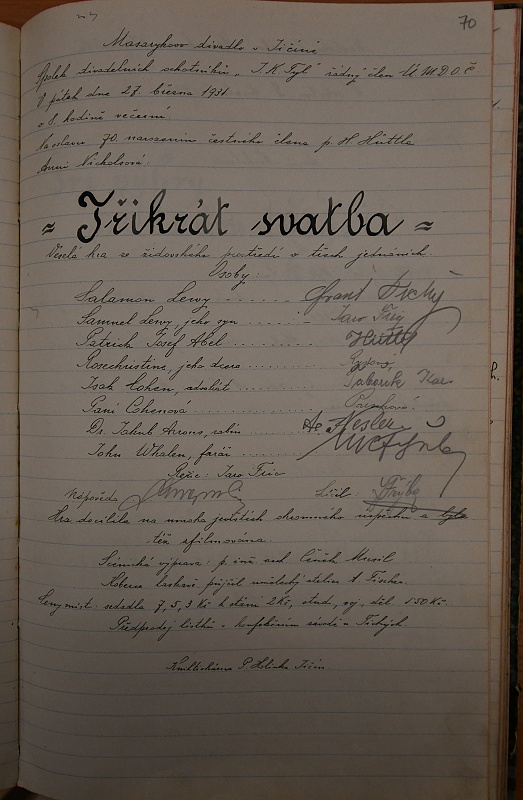 70
Masarykovo divadlo v Jičíně
Spolek divadelních ochotníků "J. K. Tyl" řádný člen Ú.M.D.O.Č
V pátek dne 27. března 1931
o 8. hodině večerní
Na oslavu 70. narozenin čestného člena p. H. Hüttla
Anni Nicholsová:
= Třikrát svatba =
Veselá hra ze židovského prostředí o třech jednáních.
Osoby:
Salamon Lewy ........ Grant Tichý
Samuel Lewy, jeho syn ........ Jaro Fric
Patrick Josef Abel ........ Hüttl
Rosechristine, jeho dcera ........
Isak Cohen, advokát ........ Táborik Kar.
Paní Cohenová ........
Dr. Jakub Arrons, rabín ........ Hesler
John Whalen, farář ........
Režie: Jaro Fric
Nápověda Líčil: Fryba
Hra docílila na mnoha jevištích ohromného úspěchu a byla
též zfilmována.
Scénická výprava: p. inž. arch. Čeněk Musil
Koberce laskavě půjčil umělecký atelier A. Fischer.
Ceny míst: sedadla 7, 5, 3 Kč k stání 2 Kč, stud., voj., děl. 1.50 Kč.
Předprodej lístků v konfekčním závodě Tichých
Knihtiskárna P. Holinka Jičín